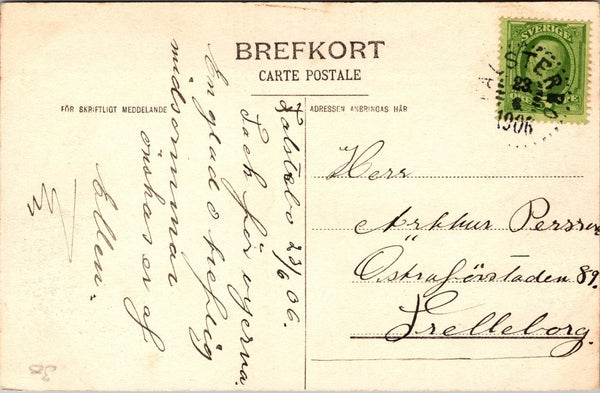 BREFKORT
CARTE POSTALE
FÖR SKRIFTLIGT MEDDELANDE
ADRESSEN ANBRINGAS HÄR
SVERIGE
23
6
1906
Falsterbo 23/6 06.
Tack för vyerna.
En glad o treflig
midsommar
önskas er af
Ellen.
Herr
Arthur Persson
Östraförstaden 89.
Trelleborg.